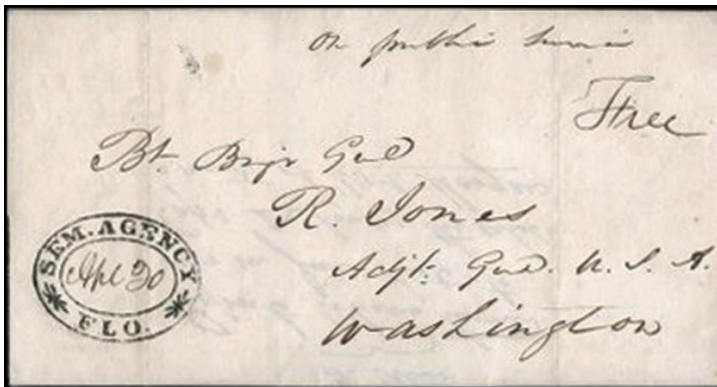 On public service
Free
Bt. Brigr Genl
R. Jones
Adjt. Genl. U. S. A.
Washington
SEM. AGENCY
Apl 30
FLO.